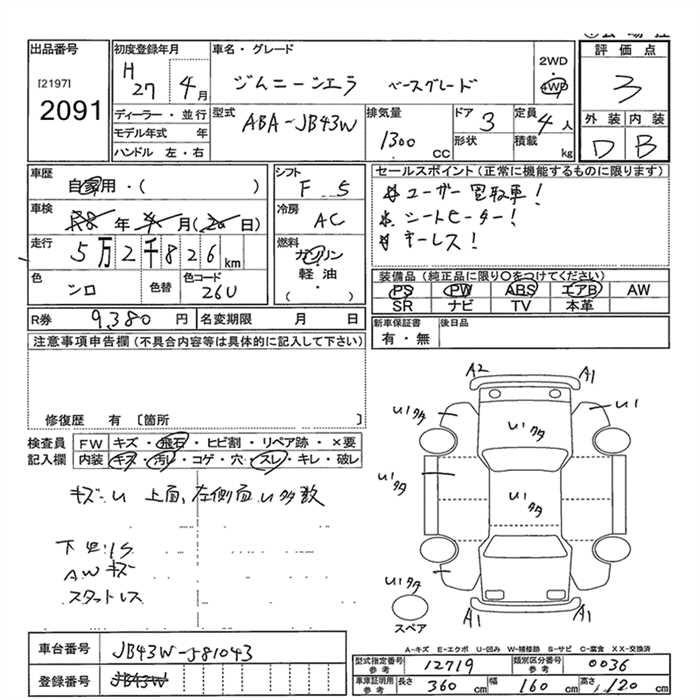 出品番号
[2197]
2091
初度登録年月
H27 4月
車名・グレード
ジムニーシエラ ベースグレード
2WD
4WD
評価点
3
外装 内装
D B
ディーラー・並行
モデル年式 年
ハンドル 左・右
型式
ABA-JB43W
排気量
1300 CC
ドア 3
形状
定員 4人
積載 kg
車歴
自家用・( )
車検
年 月( 日)
走行
5万2千826 km
色
シロ
色替
色コード
26U
シフト
F 5
冷房
AC
燃料
ガソリン
・
軽油
・
( )
セールスポイント(正常に機能するものに限ります)
ユーザー買取車!
シートヒーター!
キーレス!
装備品(純正品に限り○をつけてください)
PS PW ABS エアB AW
SR ナビ TV 本革
R券 9,380 円 名変期限 月 日
新車保証書
有・無
後日品
注意事項申告欄(不具合内容等は具体的に記入して下さい)
修復歴 有 〔箇所 〕
検査員 FW キズ・飛石・ヒビ割・リペア跡・×要
記入欄 内装 キズ・汚レ・コゲ・穴・スレ・キレ・破レ
キズ・U 上面、左側面 U多数
下回りS
AWキズ
スタットレス
A2 A1
U1タ U1
U1タ
U1タ
U1タ
U1タ
A1 A1
スペア
A-キズ E-エクボ U-凹み W-補修跡 S-サビ C-腐食 XX-交換済
車台番号 JB43W-581043
登録番号 JB43W
型式指定番号 参考 12719 類別区分番号 参考 0036
車庫証明用 参考 長さ 360 cm 幅 160 cm 高さ 120 cm